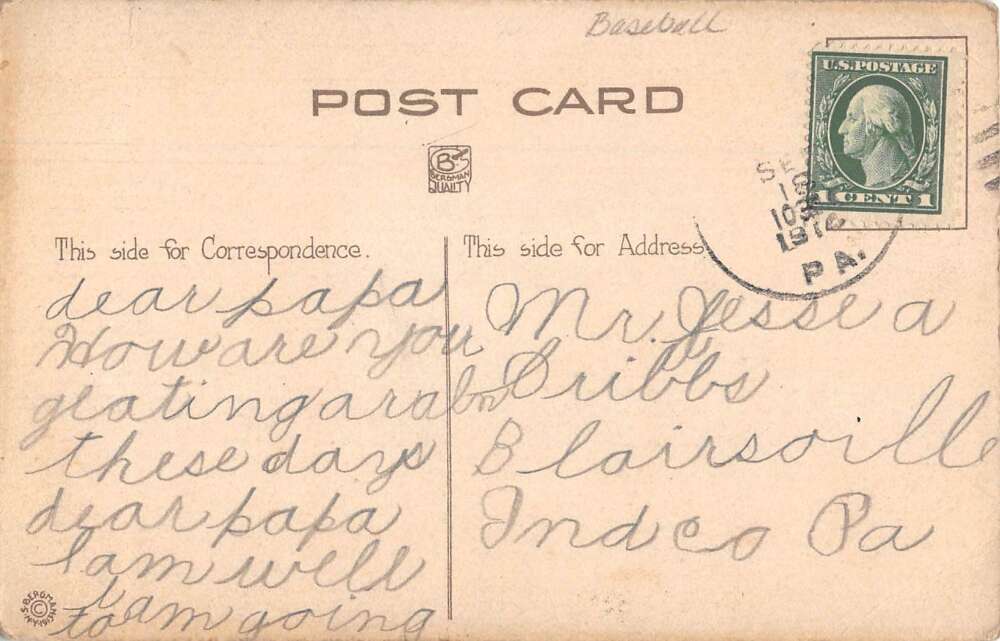 Baseball
POST CARD
U.S. POSTAGE
1 CENT 1
BS
BERGMAN
QUALITY
SEP
PA.
This side for Correspondence.
dear papa
How are you
geating arabon
these days
dear papa
I am well
I am going
to
This side for Address
Mr. Jesse a
Dribbs
Blairsville
Ind co Pa
S. BERGMAN N.Y.
©